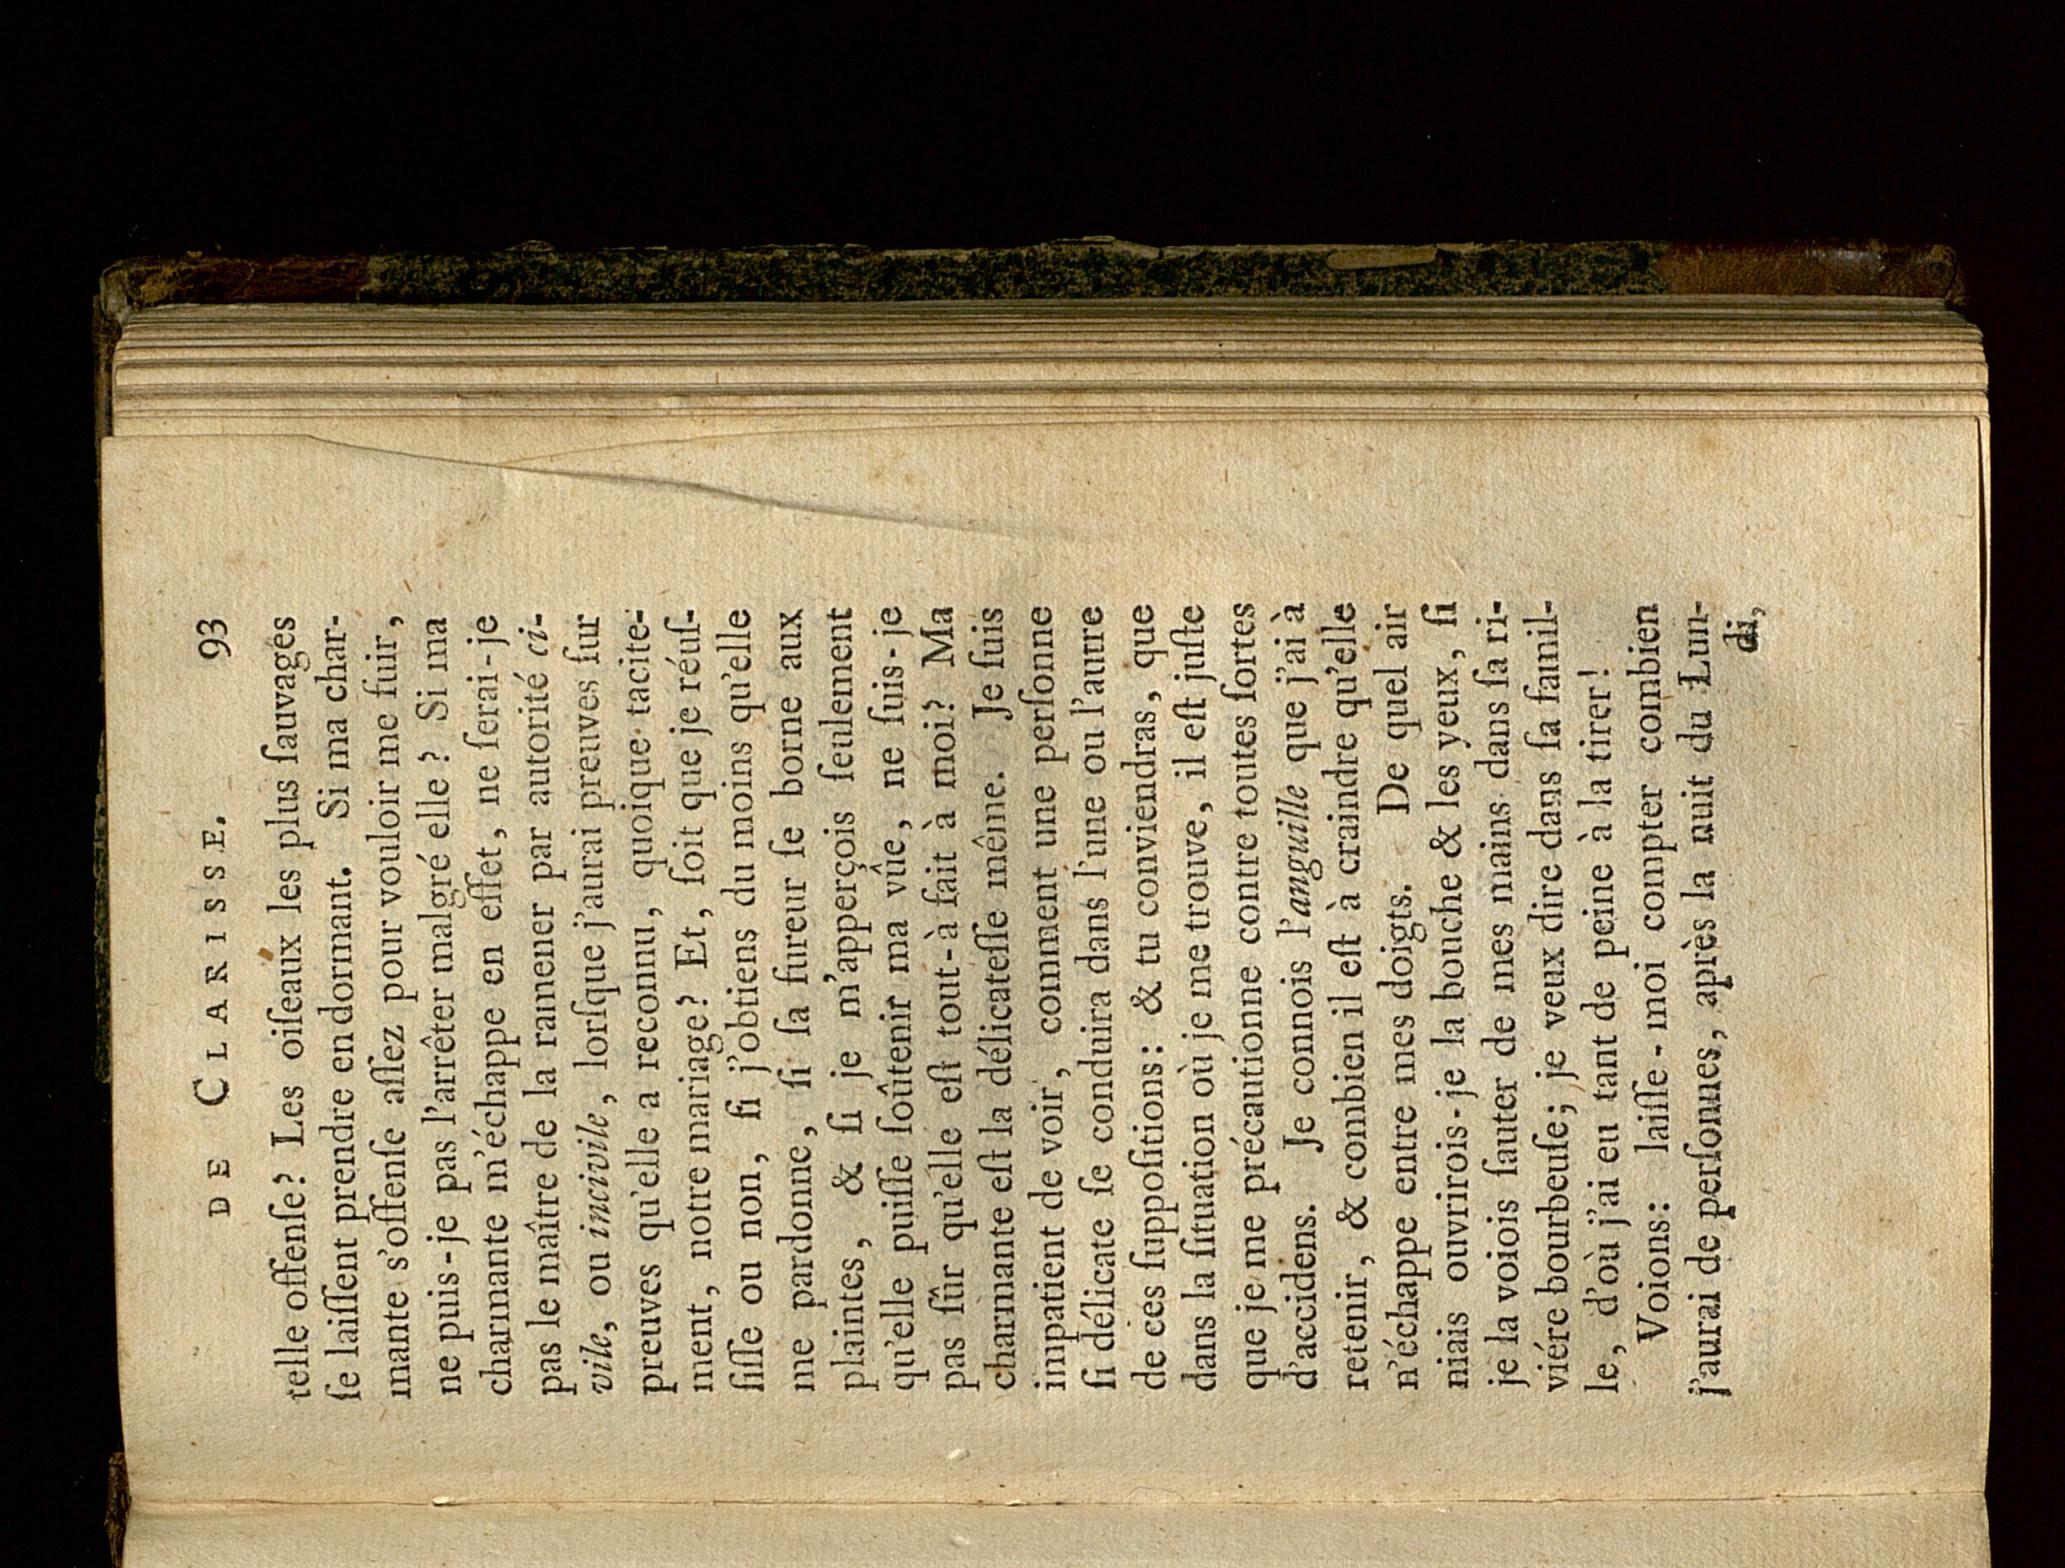 DE CLARISSE. 93
telle offenſe? Les oiſeaux les plus ſauvages
ſe laiſſent prendre en dormant. Si ma char-
mante s'offenſe aſſez pour vouloir me fuir,
ne puis-je pas l'arrêter malgré elle? Si ma
charmante m'échappe en effet, ne ſerai-je
pas le maître de la ramener par autorité ci-
vile, ou incivile, lorſque j'aurai preuves ſur
preuves qu'elle a reconnu, quoique tacite-
ment, notre mariage? Et, ſoit que je réuſ-
ſiſſe ou non, ſi j'obtiens du moins qu'elle
me pardonne, ſi ſa fureur ſe borne aux
plaintes, & ſi je m'apperçois ſeulement
qu'elle puiſſe ſoûtenir ma vûe, ne ſuis-je
pas ſûr qu'elle eſt tout-à fait à moi? Ma
charmante eſt la délicateſſe même. Je ſuis
impatient de voir, comment une perſonne
ſi délicate ſe conduira dans l'une ou l'autre
de ces ſuppoſitions: & tu conviendras, que
dans la ſituation où je me trouve, il eſt juſte
que je me précautionne contre toutes ſortes
d'accidens. Je connois l'anguille que j'ai à
retenir, & combien il eſt à craindre qu'elle
n'échappe entre mes doigts. De quel air
niais ouvrirois-je la bouche & les yeux, ſi
je la voiois ſauter de mes mains dans ſa ri-
viére bourbeuſe; je veux dire dans ſa famil-
le, d'où j'ai eu tant de peine à la tirer!
Voions: laiſſe-moi compter combien
j'aurai de perſonnes, après la nuit du Lun-
di,